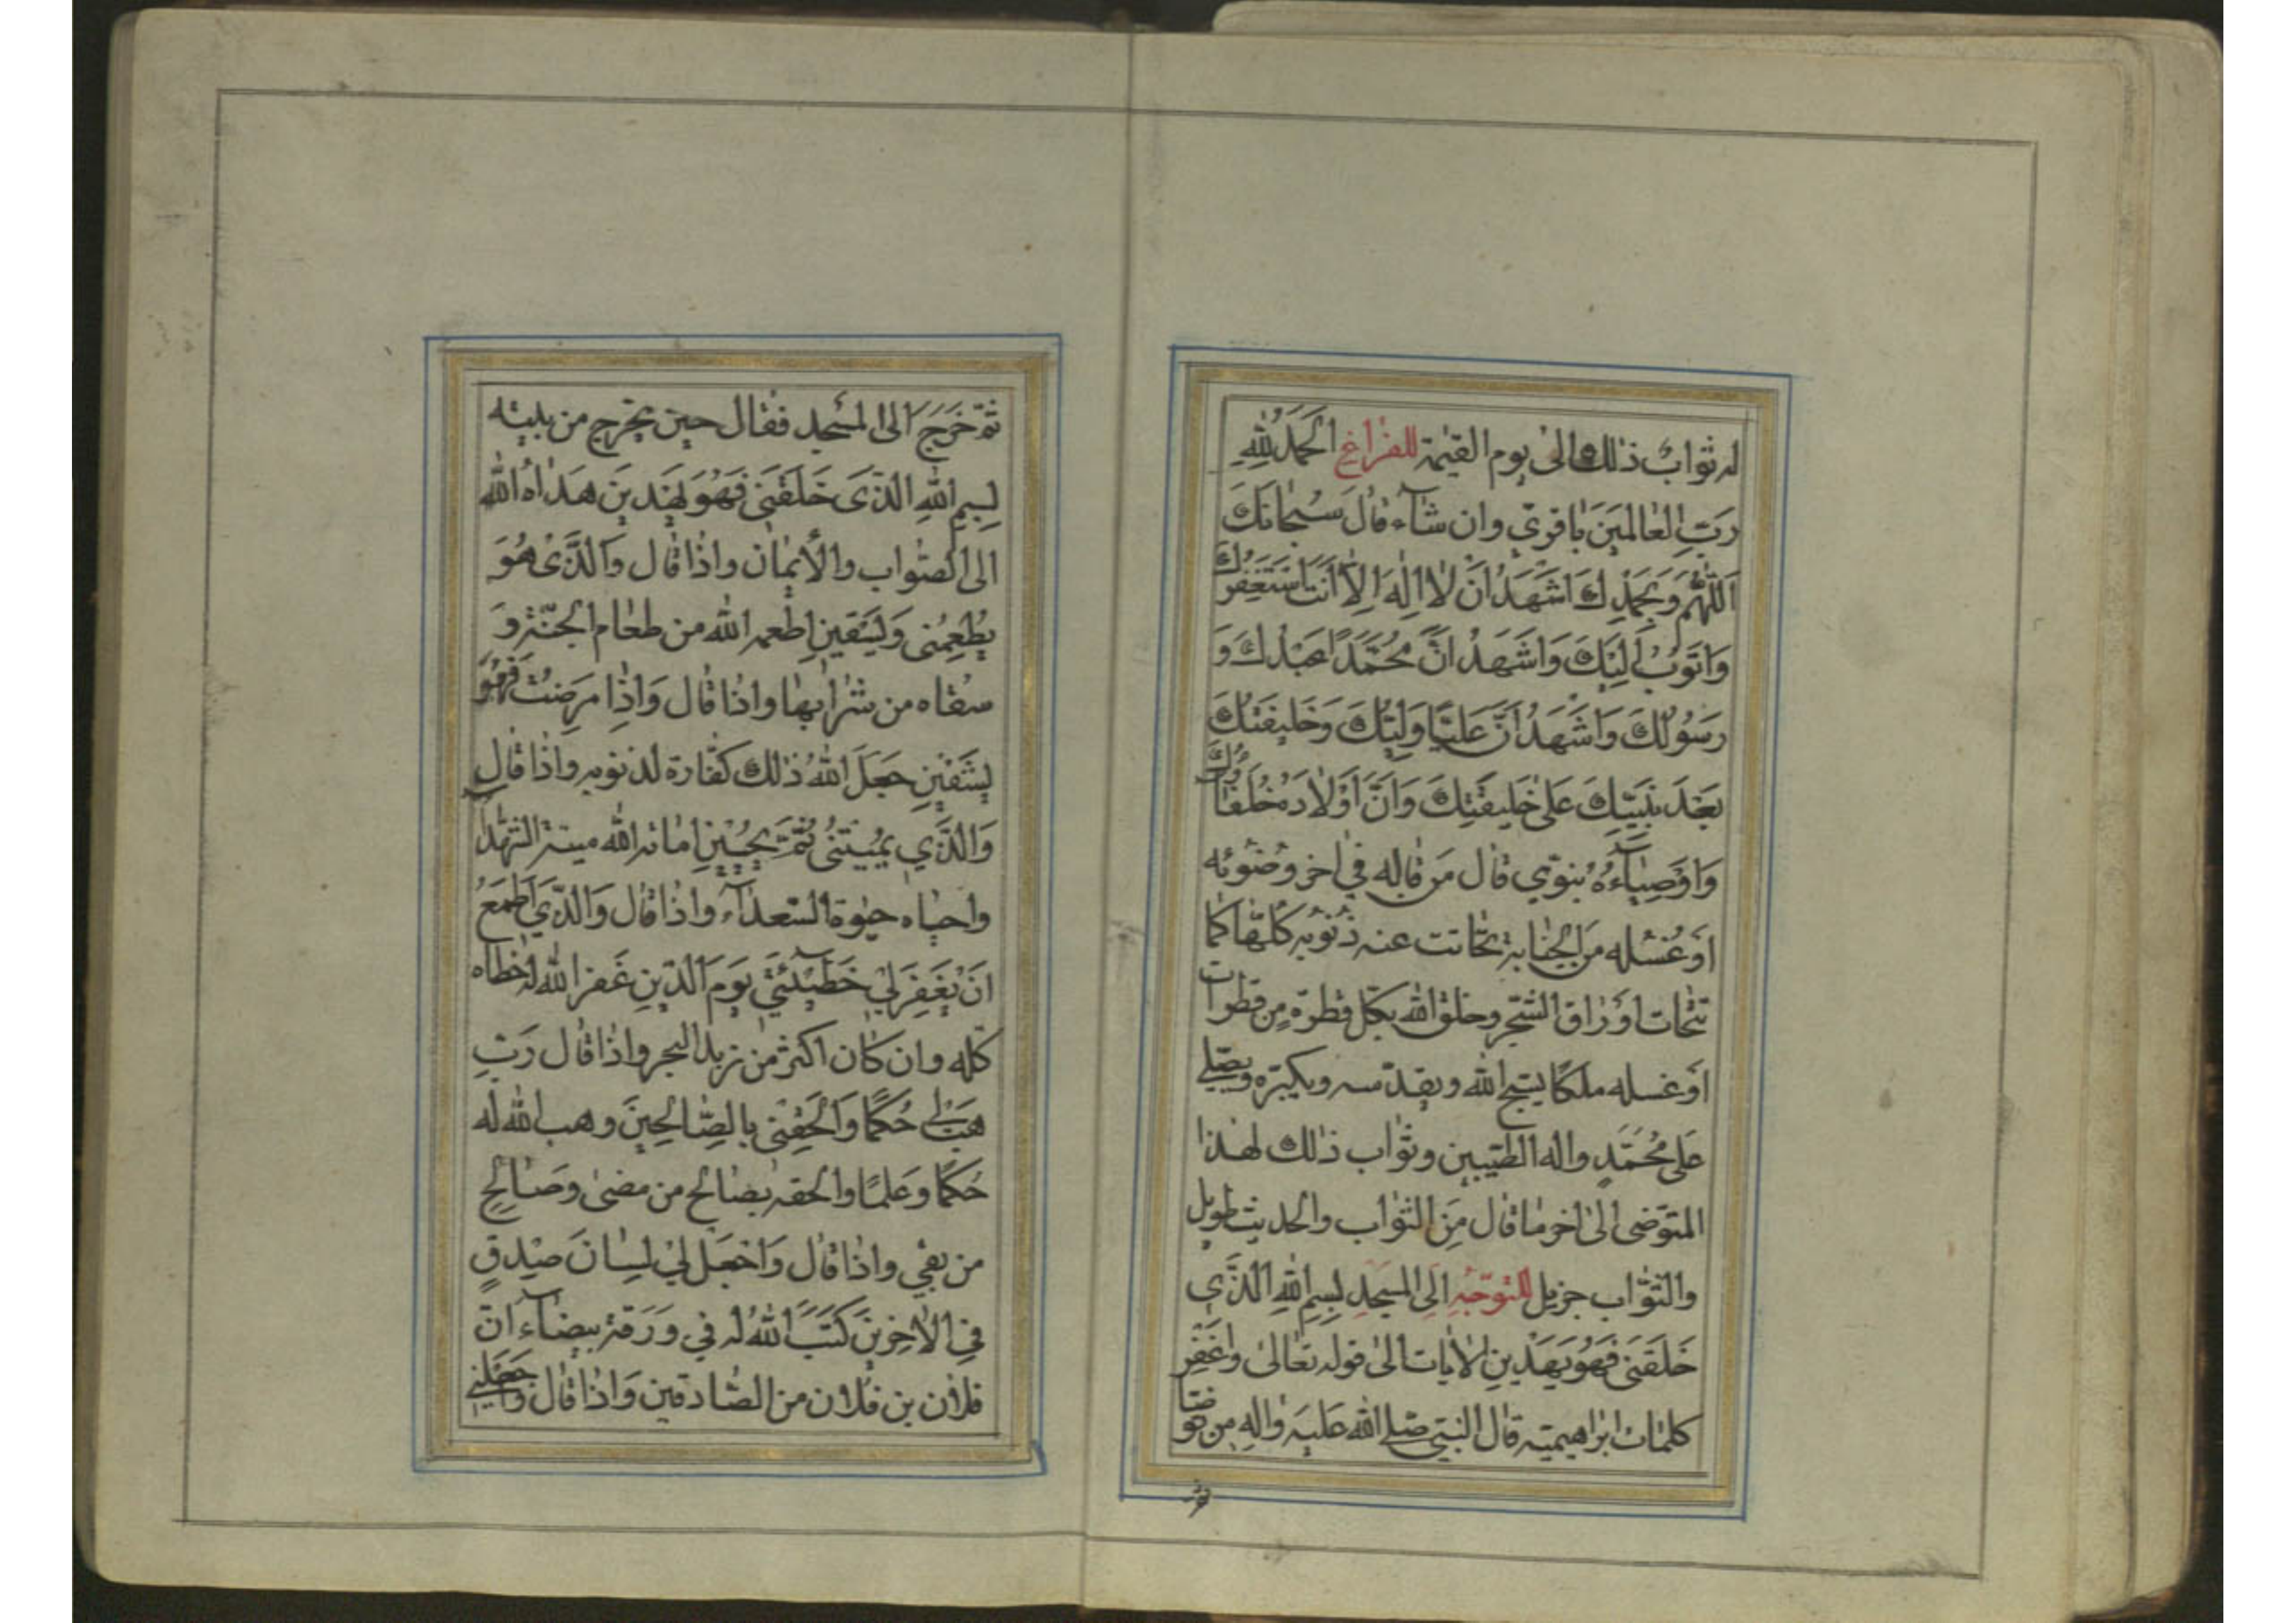 له ثوابُ ذٰلك الىٰ يوم القيٰمة للفراغ اَلحَمدُ لِلّٰهِ
رَبِّ العٰالمينَ باقوىّ وان شآء قالَ سُبحٰانَكَ
اَللّٰهُمَّ وَبِحَمدِكَ اَشهَدُ اَن لاٰ اِلٰهَ اِلاّٰ اَنتَ اَستَغفِرُكَ
وَاَتوُبُ اِلَيكَ وَاَشهَدُ اَنَّ مُحَمَّدًا عَبدُكَ وَ
رَسوُلُكَ وَاَشهَدُ اَنَّ عَلِيًّا وَلِيُّكَ وَخَليفَتُكَ
بَعدَ نَبِيِّكَ عَلىٰ خَليفَتِكَ وَاَنَّ اَولاٰدَهُ خُلَفٰاؤُكَ
وَاَوصِيٰآءَهُ بنوىّ قال مَن قٰاله في اخر وضُوئه
اوَ غُسله مِنَ الجنٰابة تحٰاتت عنه ذنوبه كُلّهٰا كمٰا
تتحٰات اوَرٰاق الشّجر وخلق الله بكلّ قطرَة مِن قطرات
اوَ غسله ملكًا يسبّح الله ويقدّسه ويكبّره ويصلّي
عَلىٰ مُحَمَّدٍ واله الطّيبين وثوٰاب ذٰلك لهٰذا
المتوّضى الىٰ اخر مٰا قال مِنَ الثوٰاب والحديث طويل
والثّوٰاب جزيل للتوجّه اِلَى المسجِدِ بِسمِ اللهِ الَّذي
خَلَقَني فَهُوَ يَهدينِ الاٰيات الىٰ قوله تعٰالىٰ وَاغفِر
كلمٰات ابرٰاهيميّه قال النّبي صلّى الله عَليهَ واٰلِهِ مِن توضّا
ثمّ
ثمّ خَرَجَ الى المسجد فقٰال حين يخرج من بيته
بِسمِ اللهِ الَّذى خَلَقَني فَهُوَ يَهدينِ هَدٰاهُ الله
الى الصّواب والأيمٰان واذٰا قٰال وَالَّذى هُوَ
يُطعِمُنى وَيَسقينِ اطعمه الله من طعٰام الجنّة وَ
سقٰاه من شرٰابهٰا واذٰا قٰال وَاِذٰا مَرِضتُ فَهُوَ
يَشفينِ جَعَلَ اللهُ ذٰلك كفّٰارة لذنوبه واذٰا قٰال
وَالَّذي يُميتُنى ثُمَّ يُحيينِ امٰاته الله ميتة الشّهدٰآ
واحيٰاه حيٰوة السّعدٰآء واذٰا قٰال وَالَّذي اَطمَعُ
اَن يَغفِرَ لي خَطيٓئَتي يَومَ الدّينِ غَفر الله لهُ خطٰاه
كلّه وان كٰان اكثر من زبد البحر واذٰا قٰال رَبِّ
هَب لى حُكمًا وَاَلحِقنى بِالصّٰالِحينَ وهب الله لَه
حُكمًا وَعَلمًا والحقه بصٰالح من مضىٰ وصَالِحِ
من بقي واذٰا قٰال وَاجعَل لي لِسٰانَ صِدقٍ
فِي الاٰخِرينَ كَتَبَ اللهُ له في وَرَقة بيضٰآء انّ
فلاٰن بن فلاٰن من الصّٰادقين وَاذٰا قٰال وَاجعَلني